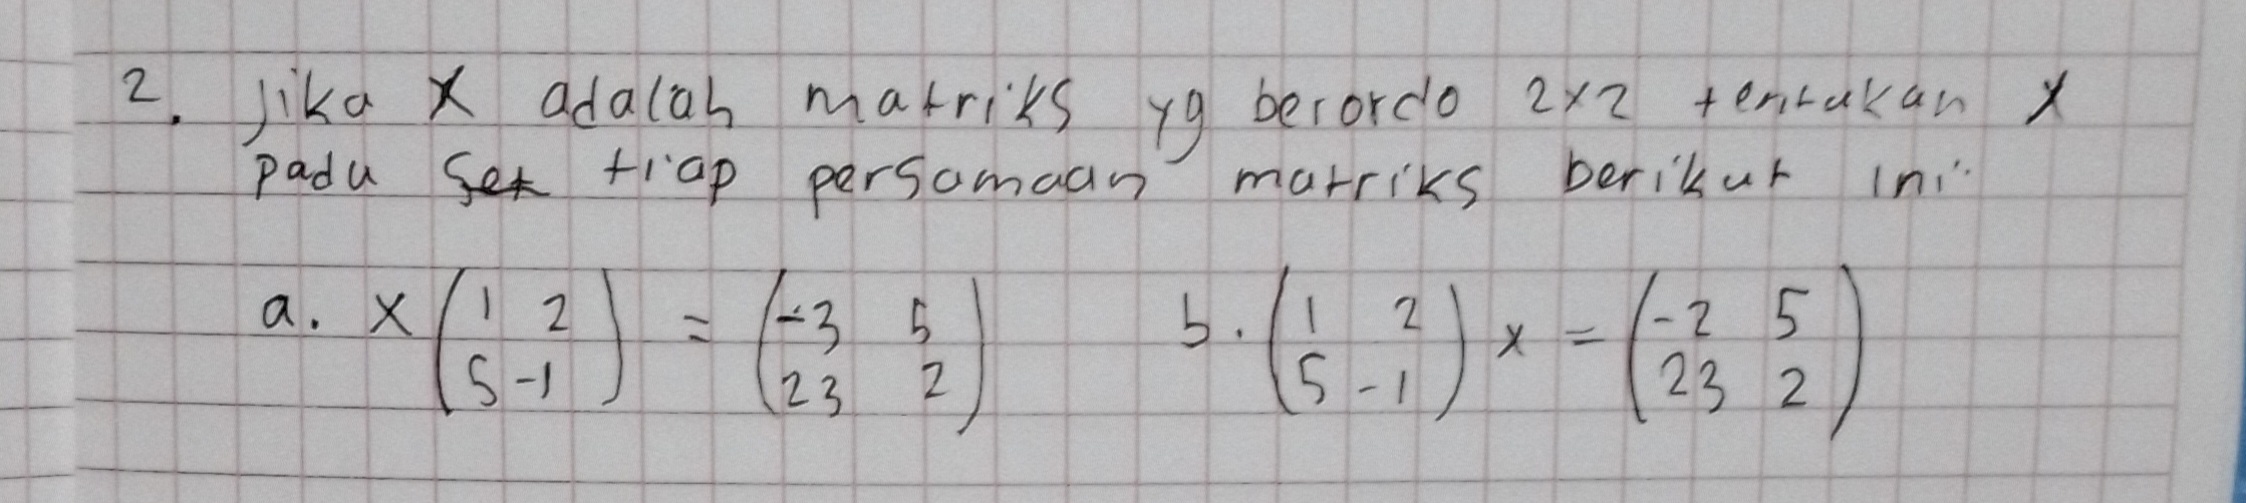 2. Jika X adalah matriks yg berordo 2x2 tentukan X
pada set tiap persamaan matriks berikut ini:
a. X (1 2) = (-3 5) b. (1 2) X = (-2 5)
(5 -1) (23 2) (5 -1) (23 2)